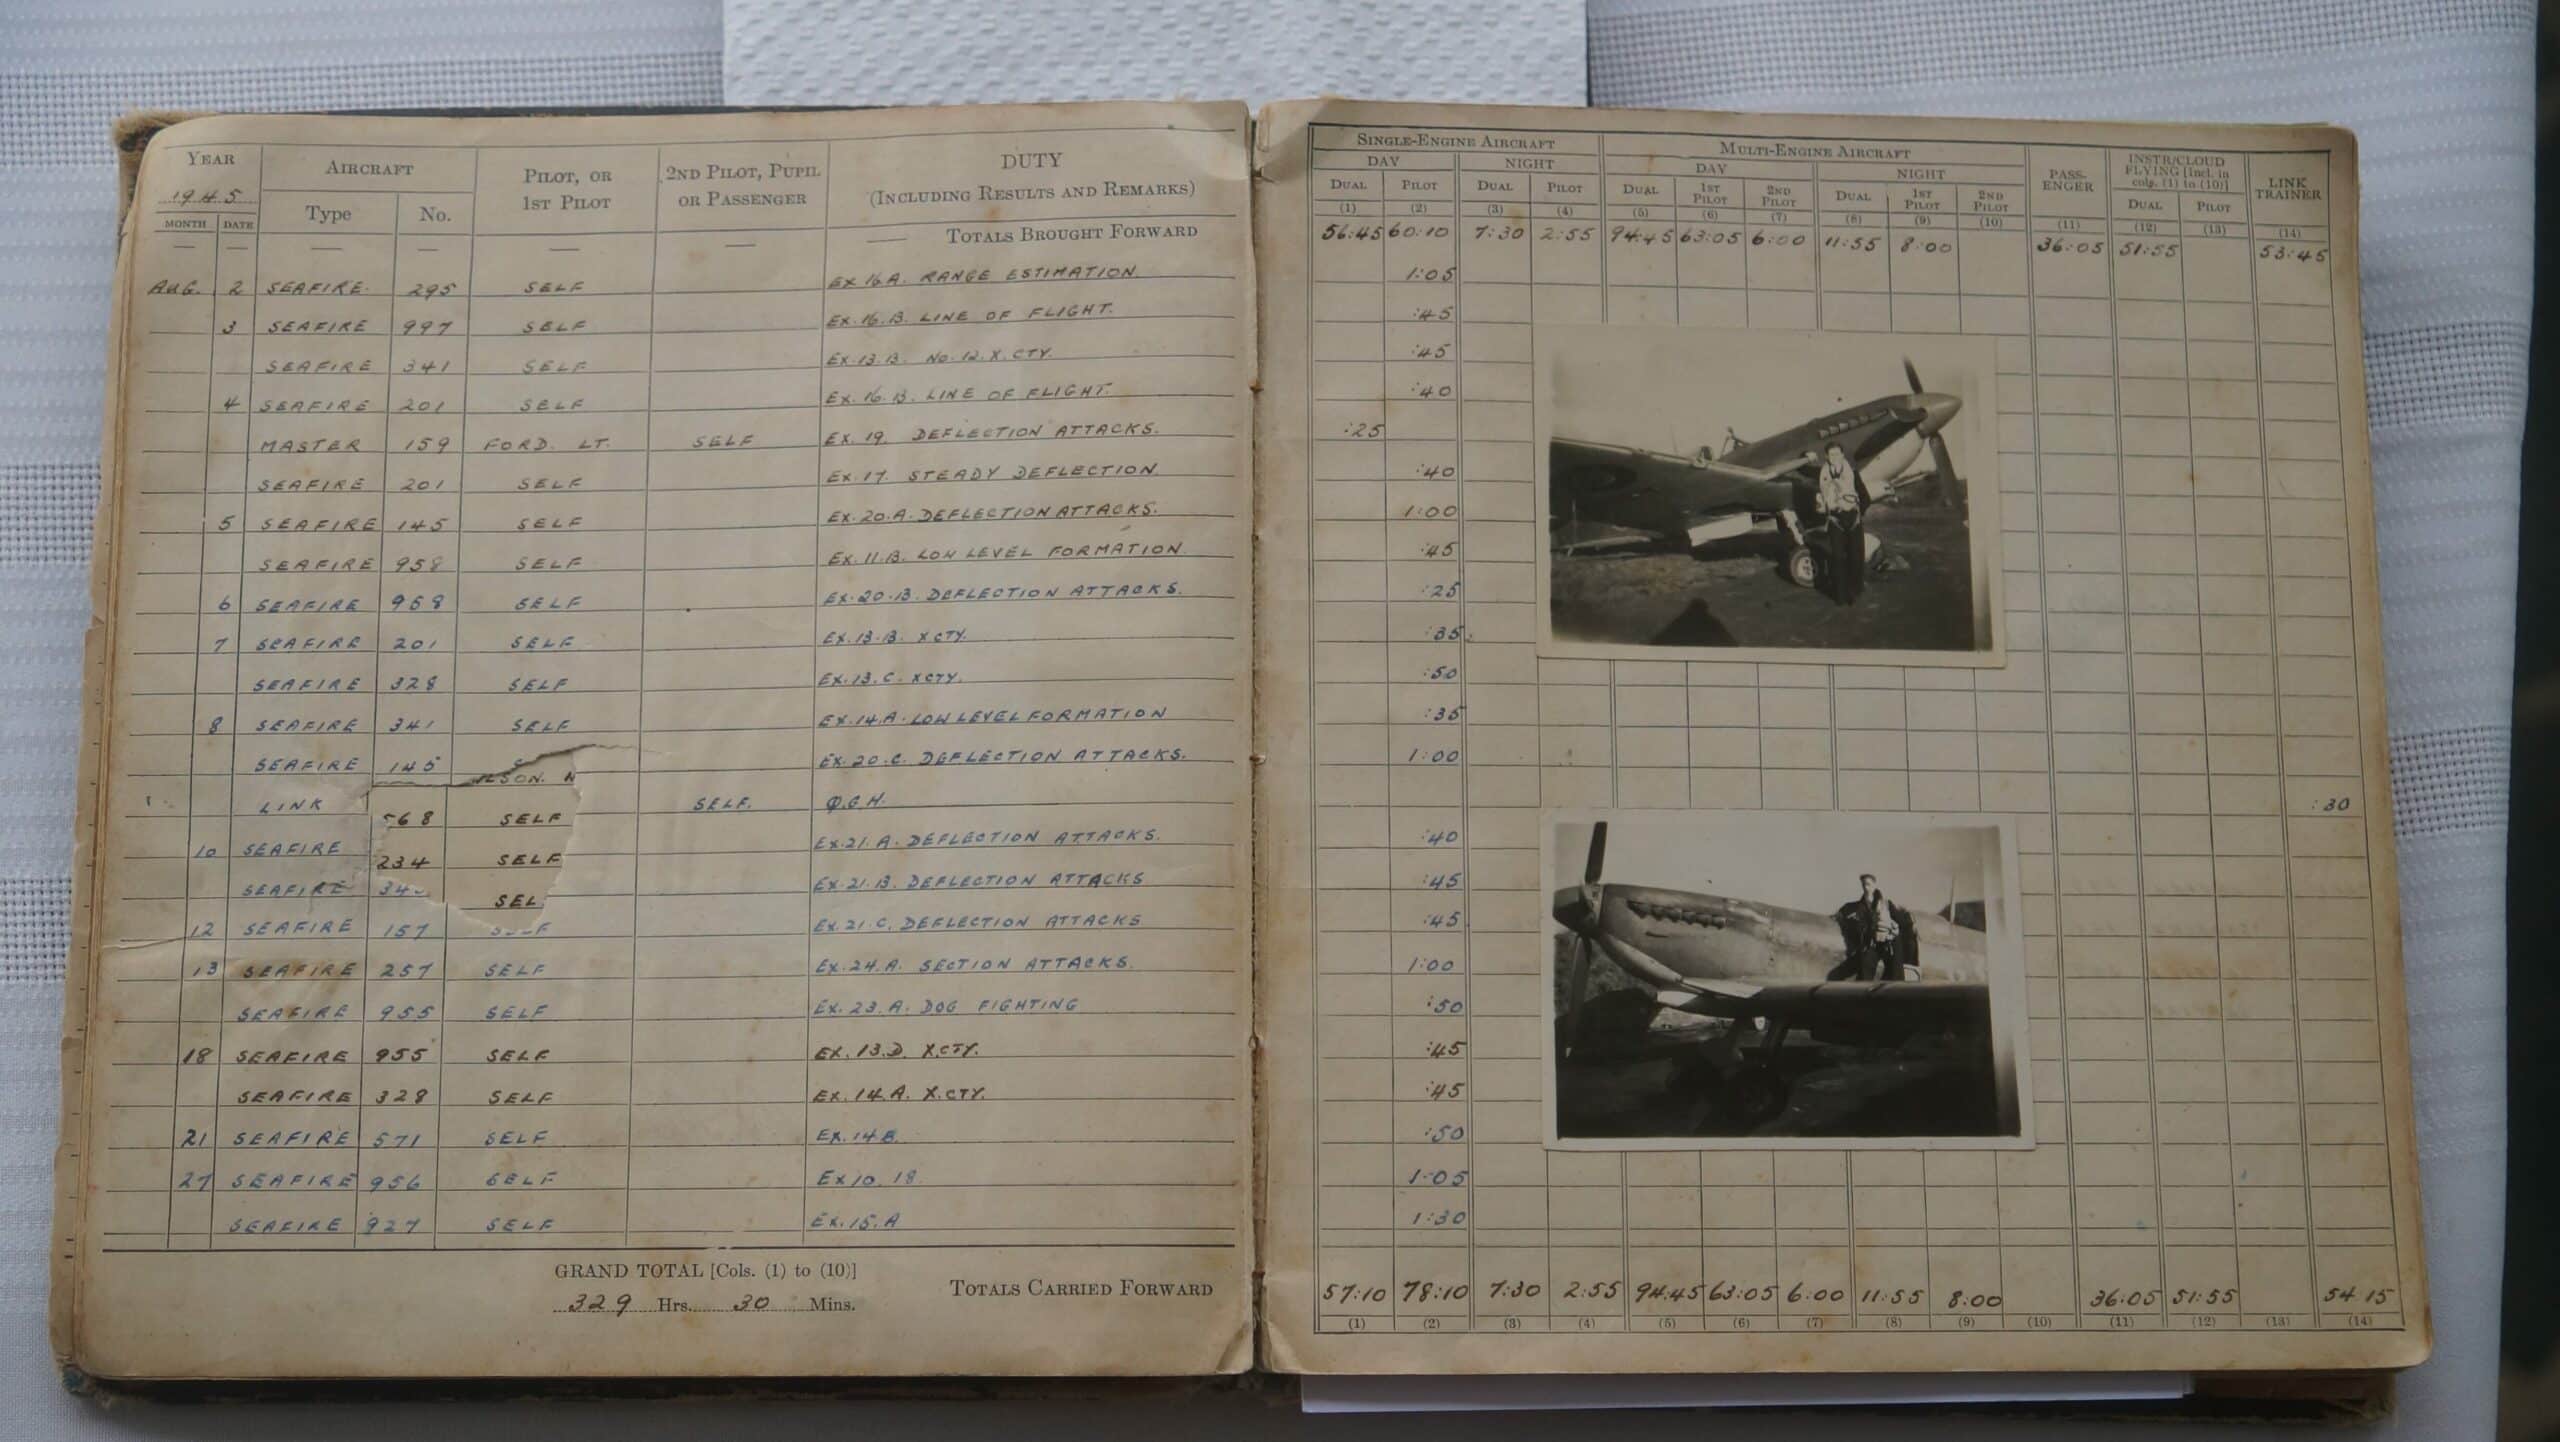 YEAR AIRCRAFT PILOT, OR 1ST PILOT 2ND PILOT, PUPIL OR PASSENGER DUTY (INCLUDING RESULTS AND REMARKS)
1945
MONTH DATE Type No.
— — — — — — — TOTALS BROUGHT FORWARD
AUG. 2 SEAFIRE. 295 SELF EX 16 A. RANGE ESTIMATION.
3 SEAFIRE 997 SELF EX. 16. B. LINE OF FLIGHT.
SEAFIRE 341 SELF EX. 13. B. NO. 12. X. CTY.
4 SEAFIRE 201 SELF EX. 16. B. LINE OF FLIGHT.
MASTER 159 FORD. LT. SELF EX. 19. DEFLECTION ATTACKS.
SEAFIRE 201 SELF EX. 17. STEADY DEFLECTION.
5 SEAFIRE 145 SELF EX. 20. A. DEFLECTION ATTACKS.
SEAFIRE 958 SELF EX. 11. B. LOW LEVEL FORMATION.
6 SEAFIRE 958 SELF EX. 20. B. DEFLECTION ATTACKS.
7 SEAFIRE 201 SELF EX. 13. B. X CTY.
SEAFIRE 328 SELF EX. 13. C. X CTY.
8 SEAFIRE 341 SELF EX. 14. A. LOW LEVEL FORMATION
SEAFIRE 145 EX. 20. C. DEFLECTION ATTACKS.
LSON.
LINK SELF. Q.G.H.
568 SELF
10 SEAFIRE EX. 21. A. DEFLECTION ATTACKS.
234 SELF
SEAFIRE 34 EX. 21. B. DEFLECTION ATTACKS
SEL
12 SEAFIRE 157 EX. 21. C. DEFLECTION ATTACKS
13 SEAFIRE 257 SELF EX. 24. A. SECTION ATTACKS.
SEAFIRE 955 SELF EX. 23. A. DOG FIGHTING
18 SEAFIRE 955 SELF EX. 13. D. X. CTY.
SEAFIRE 328 SELF EX. 14. A. X. CTY.
21 SEAFIRE 571 SELF EX. 14 B.
27 SEAFIRE 956 SELF EX 10. 18.
SEAFIRE 927 SELF EX. 15. A
GRAND TOTAL [Cols. (1) to (10)]
329 Hrs. 30 Mins.
TOTALS CARRIED FORWARD
SINGLE-ENGINE AIRCRAFT MULTI-ENGINE AIRCRAFT PASS-ENGER INSTR/CLOUD FLYING [Incl. in cols. (1) to (10)] LINK TRAINER
DAY NIGHT DAY NIGHT
DUAL PILOT DUAL PILOT DUAL 1ST PILOT 2ND PILOT DUAL 1ST PILOT 2ND PILOT DUAL PILOT
(1) (2) (3) (4) (5) (6) (7) (8) (9) (10) (11) (12) (13) (14)
56:45 60:10 7:30 2:55 94:45 63:05 6:00 11:55 8:00 36:05 51:55 53:45
1:05
:45
:45
:40
:25
:40
1:00
:45
:25
:35
:50
:35
1:00
:30
:40
:45
:45
1:00
:50
:45
:45
:50
1:05
1:30
57:10 78:10 7:30 2:55 94:45 63:05 6:00 11:55 8:00 36:05 51:55 54 15
(1) (2) (3) (4) (5) (6) (7) (8) (9) (10) (11) (12) (13) (14)